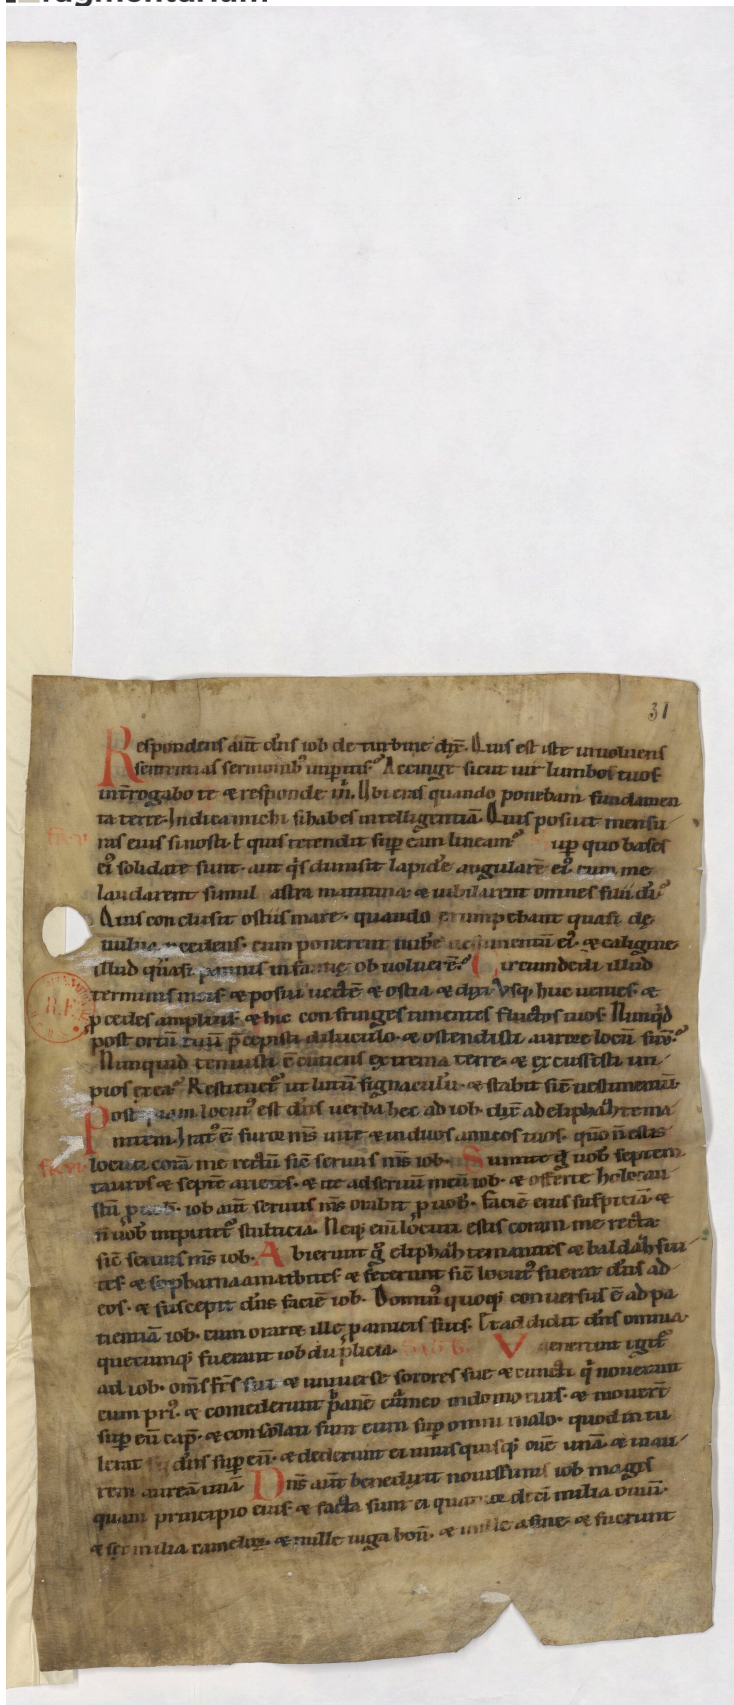 fragmentarium
31
Respondens aut̄ dn̄s iob de turbine dix̄. Quis est iste inuoluens
sententias sermonib; imperitis? Accinge sicut uir lumbos tuos
int̄rogabo te & responde m̄. Ubi eras quando ponebam fundamen
ta terre. Indica michi si habes intelligentiā. Quis posuit mensu
ras eius si nosti. ł quis tetendit sup̄ eam lineam? up̄ quo bases
ei᷒ solidate sunt. aut q̇s dimisit lapidē angularē ei᷒. cum me
laudarent simul astra matutina. & iubilarent omnes filii di᷒
Quis conclusit ostiis mare. quando erumpebant quasi de
uulua p̄cedens. cum ponerem nubē uestimentū ei᷒. & caligine
illud quasi pannis infantie obuoluerē? Circumdedi illud
terminis meis & posui uectē & ostia & dixi Vsq; huc uenies. &
p̄cedes amplius. & hic confringes tumentes fluctus tuos. Nunqd
post ortū tuū p̄cepisti diluculo. & ostendisti aurore locū suū?
Nunquid tenuisti c̄cutiens extrema terre. & excussisti im
pios ex ea? Restituet᷒ ut lutū signaculū. & stabit sic̄ uestimentū.
Post quam locut᷒ est dn̄s uerba hec ad iob. dix̄ ad eliphāh tema
nitem. Irat᷒ ē furor ms̄ in te & in duos amicos tuos. qūo n̄ estis
locuti corā me rectū sic̄ seruus ms̄ iob. Sumite ḡ uob̄ septem
tauros & septē arietes. & ite ad seruū meū iob. & offerte holocau
stū p̄ uob̄. iob aut̄ seruus ms̄ orabit p̄ uob̄. faciē eius suspiciā &
n̄ uob̄ imputet᷒ stulticia. Neq; eni̅ locuti estis coram me recta.
sic̄ seruus ms̄ iob. Abierunt ḡ eliphāh temanites & baldāh sui
tes & sophar naamathites & fecerunt sic̄ locut᷒ fuerat dn̄s ad
eos. & suscepit dn̄s faciē iob. Domin᷒ quoq; conuersus ē ad pe
nitentiā iob. cum oraret ille p̄ amicis suis. Et addidit dn̄s omnia
quecumq; fuerant iob duplicia. Venerunt igit᷒
ad iob. om̄s fr̄s sui & uniuerse sorores sue & cuncti q̇ nouerant
eum pri᷒. & comederunt panē cū eo in domo eius. & mouerȳ
sup̄ eū cap᷒. & consolati sunt eum sup̄ omni malo. quod intu
lerat dn̄s sup̄ eū. & dederunt ei unusquisq; ouē unā. & inau
rem aureā unā Dn̄s aut̄ benedixit nouissimis iob magis
quam principio eius. & facta sunt ei quatuordeci̅ milia ouiū.
& sex milia camelorꝝ. & mille iuga boū. & mille asine. & fuerunt